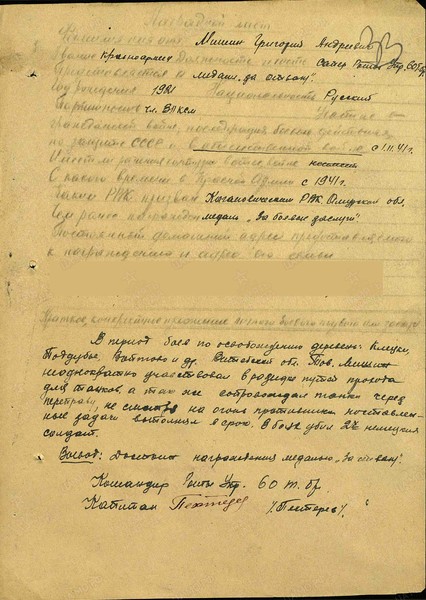 Наградной лист
Фамилия имя отч. Мишин Григорий Андреевич
Звание Красноармеец Должность и часть Сапер Роты Упр. 60 Тбр
Представляется к медали „За отвагу"
Год рождения 1921 Национальность Русский
Партийность чл. ВЛКСМ Участие в
гражданской войне, последующих боевых действиях
по защите СССР и Отечественной войне с 1.11.41 г.
Имеет ли ранения контузии в отеч. войне не имеет
С какого времени в Красной Армии с 1941 г.
Каким РВК призван Кагановическим РВК Омурская обл.
Чем ранее награжден медаль „За боевые заслуги"
Постоянный домашний адрес представляемого
к награждению и адрес его семьи
Краткое, конкретное изложение личного боевого подвига или заслуг
В период боев по освобождению деревень: Клецки,
Поддубье, Войтово и др. Витебской обл. Тов. Мишин
неоднократно участвовал в разведке путей прохода
для танков, а так же сопровождал танки через
переправу, не смотря на огонь противника поставлен-
ные задачи выполнял в срок. В боях убил 2х немецких
солдат.
Вывод: Достоин награждения медалью „За отвагу".
Командир Роты Упр. 60 т. бр.
Капитан